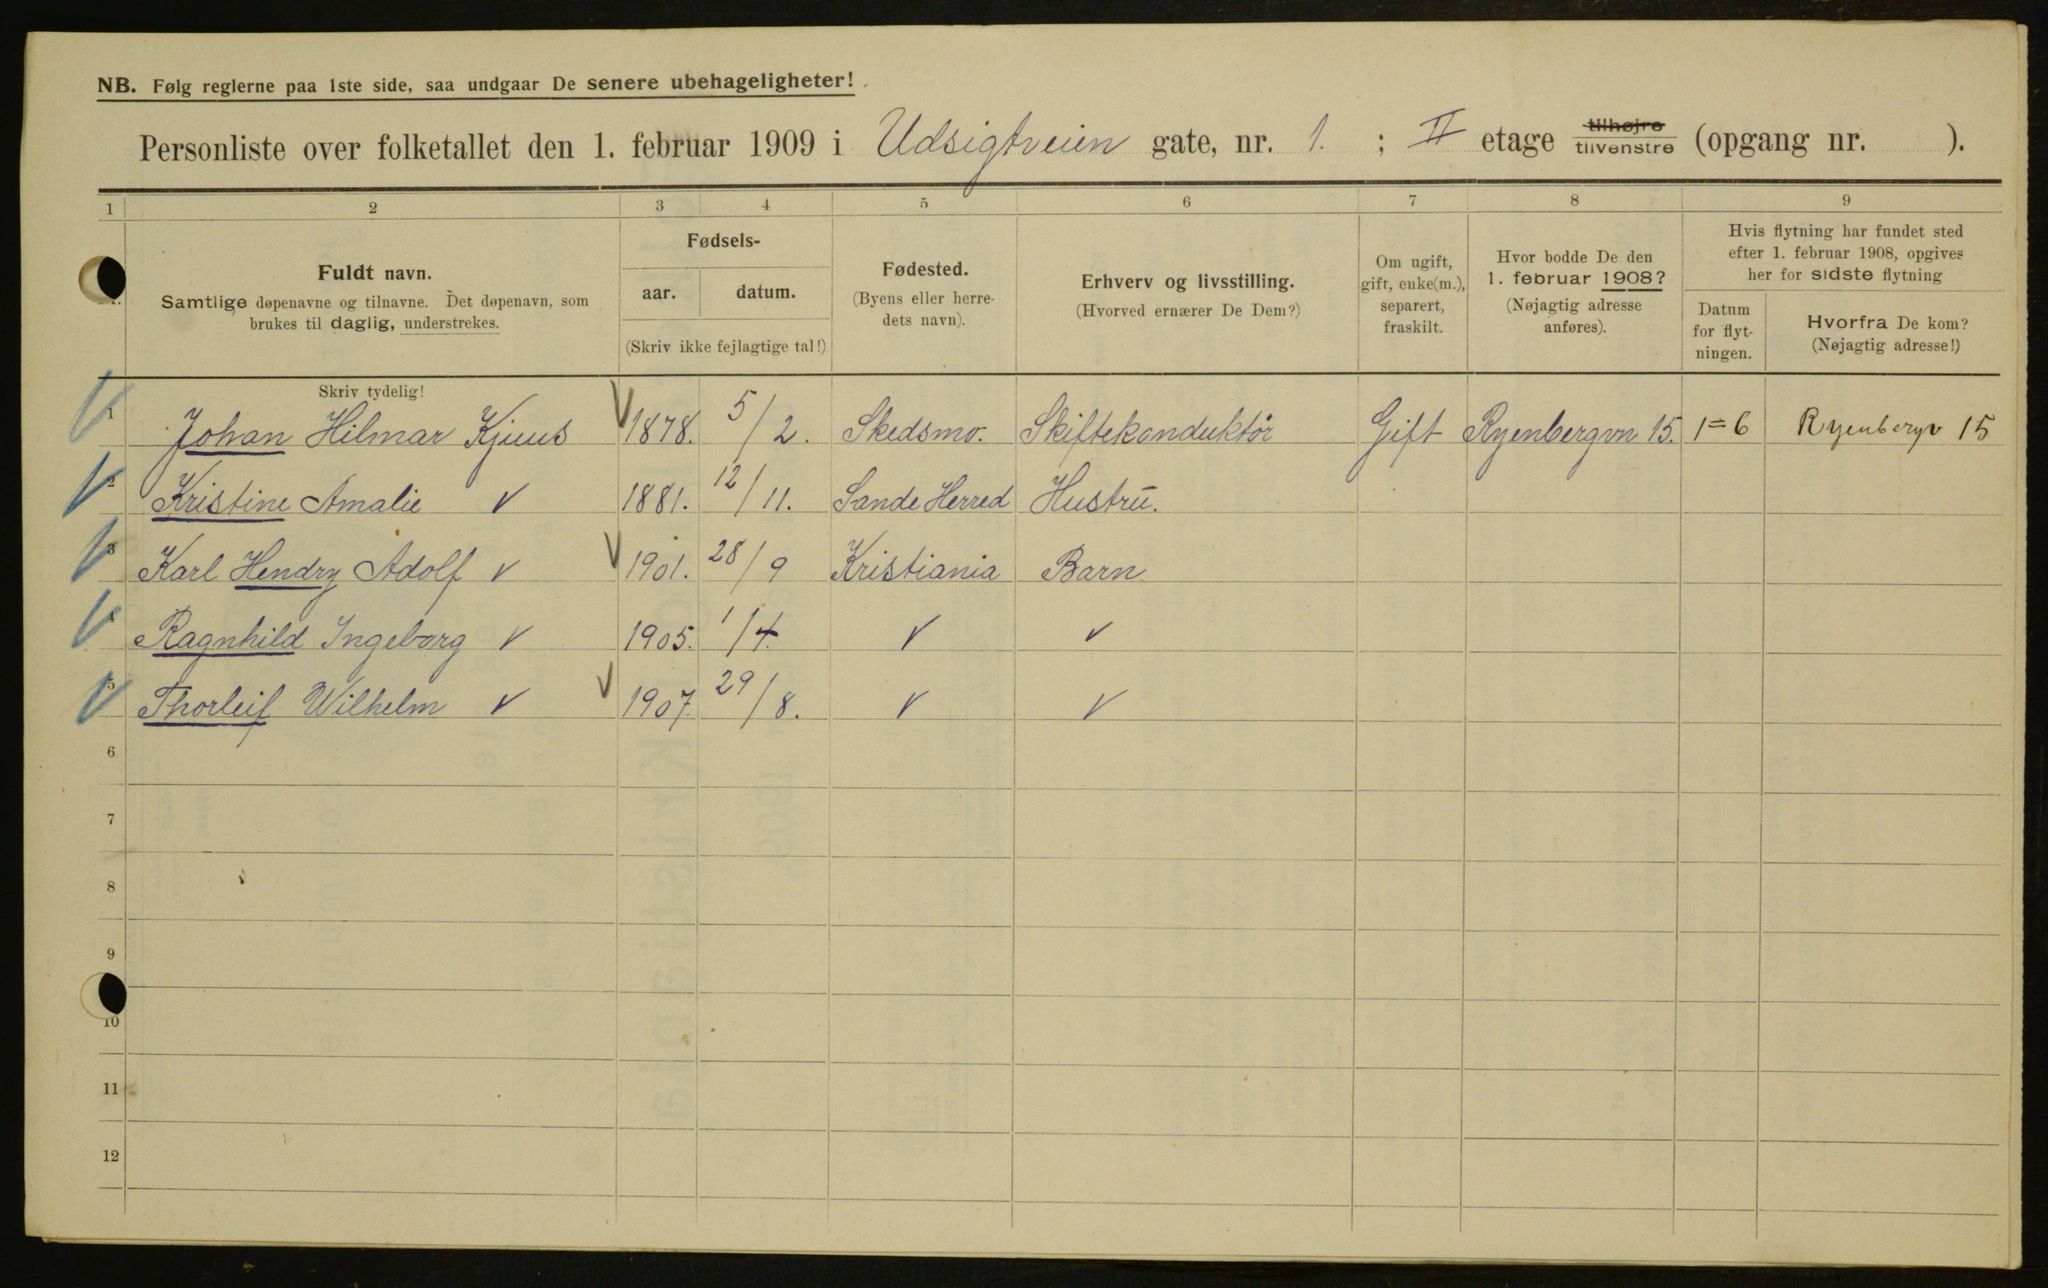 NB. Følg reglerne paa 1ste side, saa undgaar De senere ubehageligheter!
Personliste over folketallet den 1. februar 1909 i Udsigtveien gate, nr. 1. ; II etage tilhøjre tilvenstre (opgang nr. ).
1 2 3 4 5 6 7 8 9
Fuldt navn.
Samtlige døpenavne og tilnavne. Det døpenavn, som
brukes til daglig, understrekes.
Fødsels-
aar. datum.
(Skriv ikke fejlagtige tal!)
Fødested.
(Byens eller herre-
dets navn).
Erhverv og livsstilling.
(Hvorved ernærer De Dem?)
Om ugift,
gift, enke(m.),
separert,
fraskilt.
Hvor bodde De den
1. februar 1908?
(Nøjagtig adresse
anføres).
Hvis flytning har fundet sted
efter 1. februar 1908, opgives
her for sidste flytning
Datum
for flyt-
ningen.
Hvorfra De kom?
(Nøjagtig adresse!)
Skriv tydelig!
1 Johan Hilmar Kjuus 1878. 5/2. Skedsmo. Skiftekonduktör Gift Ryenbergvn 15. 1=6 Ryenbergv 15
2 Kristine Amalie √ 1881. 12/11. Sande Herred Hustru.
3 Karl Hendry Adolf √ 1901. 28/9 Kristiania Barn
4 Ragnhild Ingeborg √ 1905. 1/4. √ √
5 Thorleif Wilhelm √ 1907. 29/8. √ √
6
7
8
9
10
11
12